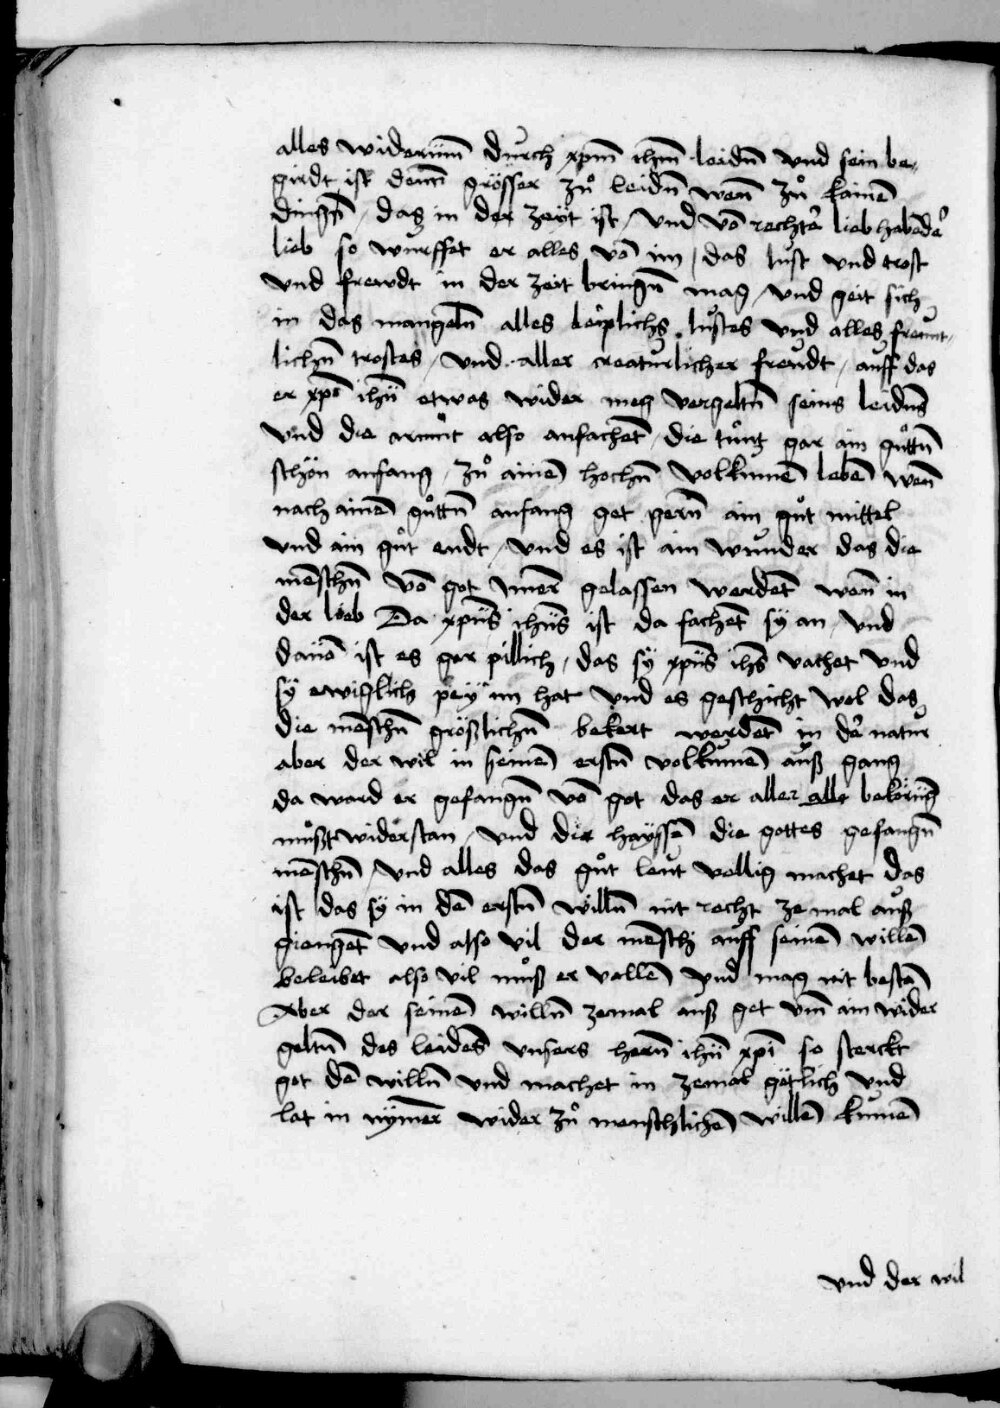 alles widerūm durch xp̄m ihm̄ leidn̄ vnd sein be„
girdt ist denn̄ grösser zů leidn̄ wen̄ zů kainē
dingn̄ / das in der zeÿt ist / vnd vō rechter liebhabēder
lieb so wurffet er alles vō im / das lust vnd trost
vnd frewdt in der zeit bringn̄ mag / vnd geit sich
in das mangeln̄ alles leiplichs lustes vnd alles freunt„
lichn̄ trostes / vnd aller creaturlicher freudt / auff das
er xpō ihū etwas wider meg vergeltn̄ seins leidns̄
vnd die also anfachēt / die tůnt gar ain gůttn̄
schön anfang / zů ainē hochn̄ volkumē lebē wen̄
nach ainē gůttn̄ anfang get gern̄ ain gůt mittel
vnd ain gůt endt / vnd es ist ain wunder das die
mēschn̄ vō got ymer̄ gelassen werdēt wen̄ in
der lieb Da xpūs ihūs ist da fachēt sÿ an / vnd
dauō ist es gar pillich / das sÿ xpūs ihs̄ vachet vnd
sÿ ewiglich peÿ im hat vnd es geschicht wol das
die mēschn̄ größlichn̄ bekort werdēt in der natur
aber der wil in seinē erstn̄ volkumē auß gang
da ward er gefangn̄ vō got das er aller alle bekorūg
můßt widerstan / vnd die haÿssē die gottes gefangn̄
mēschn̄ / vnd alles das gůt leut vellig machet das
ist das sÿ in dē erstn̄ willn̄ nit recht zemal auß
giengēt vnd also vil der mēsch auff seinē willē
beleibet also vil můß er vallē vnd mag nit bestē
Aber der seinē willn̄ zemal auß get vm̄ ain wider
geltn̄ des leidēs vnsers hern̄ ihū xpī so sterckt
got dē willn̄ vnd machet in zemal götlich vnd
lat in nÿmer̄ wider zů menschlichē willē kumē
vnd der wil